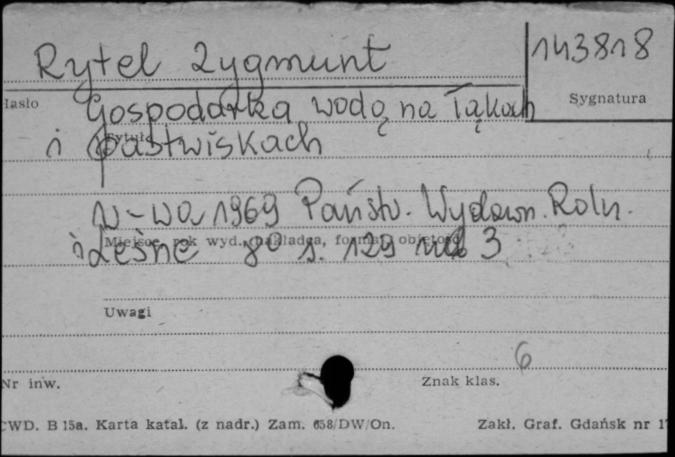 Rytel Zygmunt
143818
Hasło
Sygnatura
Gospodarka wodą na łąkach
Tytuł
i pastwiskach
W-wa 1969 Państw. Wydawn. Roln.
Miejsce, rok wyd., nakładca, format, objętość
i Leśne 8° s. 129 nlb 3
Uwagi
6
Nr inw.
Znak klas.
CWD. B 15a. Karta katal. (z nadr.) Zam. 658/DW/On.
Zakł. Graf. Gdańsk nr 1